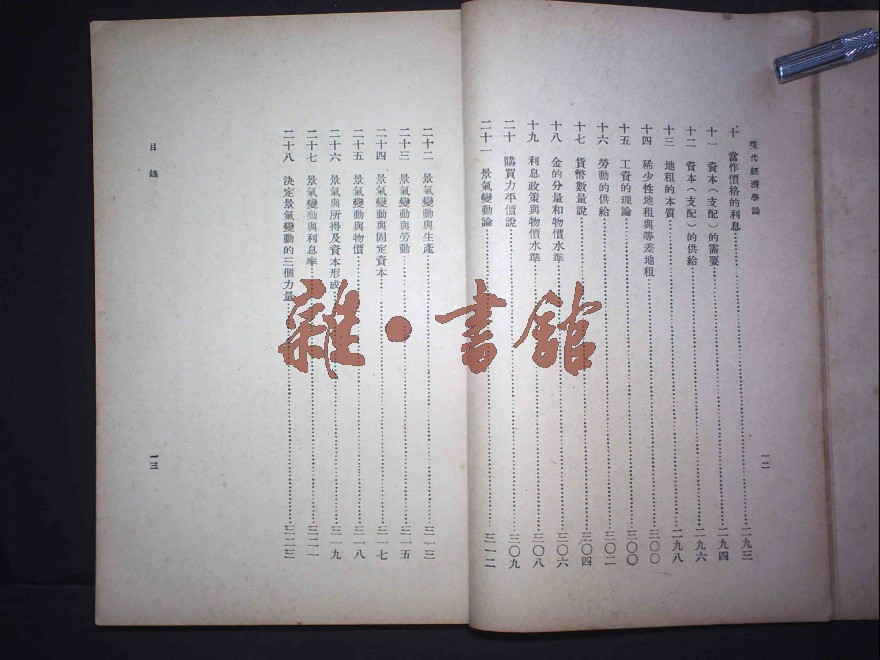 現代經濟學論
十 當作價格的利息……二九三
十一 資本(支配)的需要……二九四
十二 資本(支配)的供給……二九六
十三 地租的本質……二九八
十四 稀少性地租與等差地租……三〇〇
十五 工資的理論……三〇〇
十六 勞動的供給……三〇二
十七 貨幣數量說……三〇四
十八 金的分量和物價水準……三〇六
十九 利息政策與物價水準……三〇八
二十 購買力平價說……三〇九
二十一 景氣變動論……三一二
一二
二十二 景氣變動與生產……三一三
二十三 景氣變動與勞動……三一五
二十四 景氣變動與固定資本……三一七
二十五 景氣變動與物價……三一八
二十六 景氣與所得及資本形成……三一九
二十七 景氣變動與利息率……三二一
二十八 決定景氣變動的三個力量……三二三
目錄
一三
雜·書館